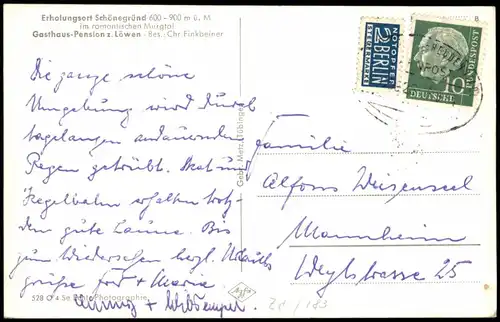 Erholungsort Schönegründ 600-900 m ü. M
im romantischen Murgtal
Gasthaus-Pension z. Löwen - Bes.: Chr Finkbeiner
Die ganze schöne
Umgebung wird durch
tagelangen andauernden
Regen getrübt. Skat und
Kegelbahn erhalten trotz-
dem gute Laune. Bis
zum Wiedersehen herzl. Urlaubs
grüße + Marie
+
528 O 4 Se Echte Photographie
Gebr. Metz, Tübingen
NOTOPFER
2 BERLIN
STEUERMARKE
DEUTSCHE BUNDESPOST
10
8
Familie
Alfons Weisensel
Mannheim
Weylstrasse 25
Agfa
Zd / 183